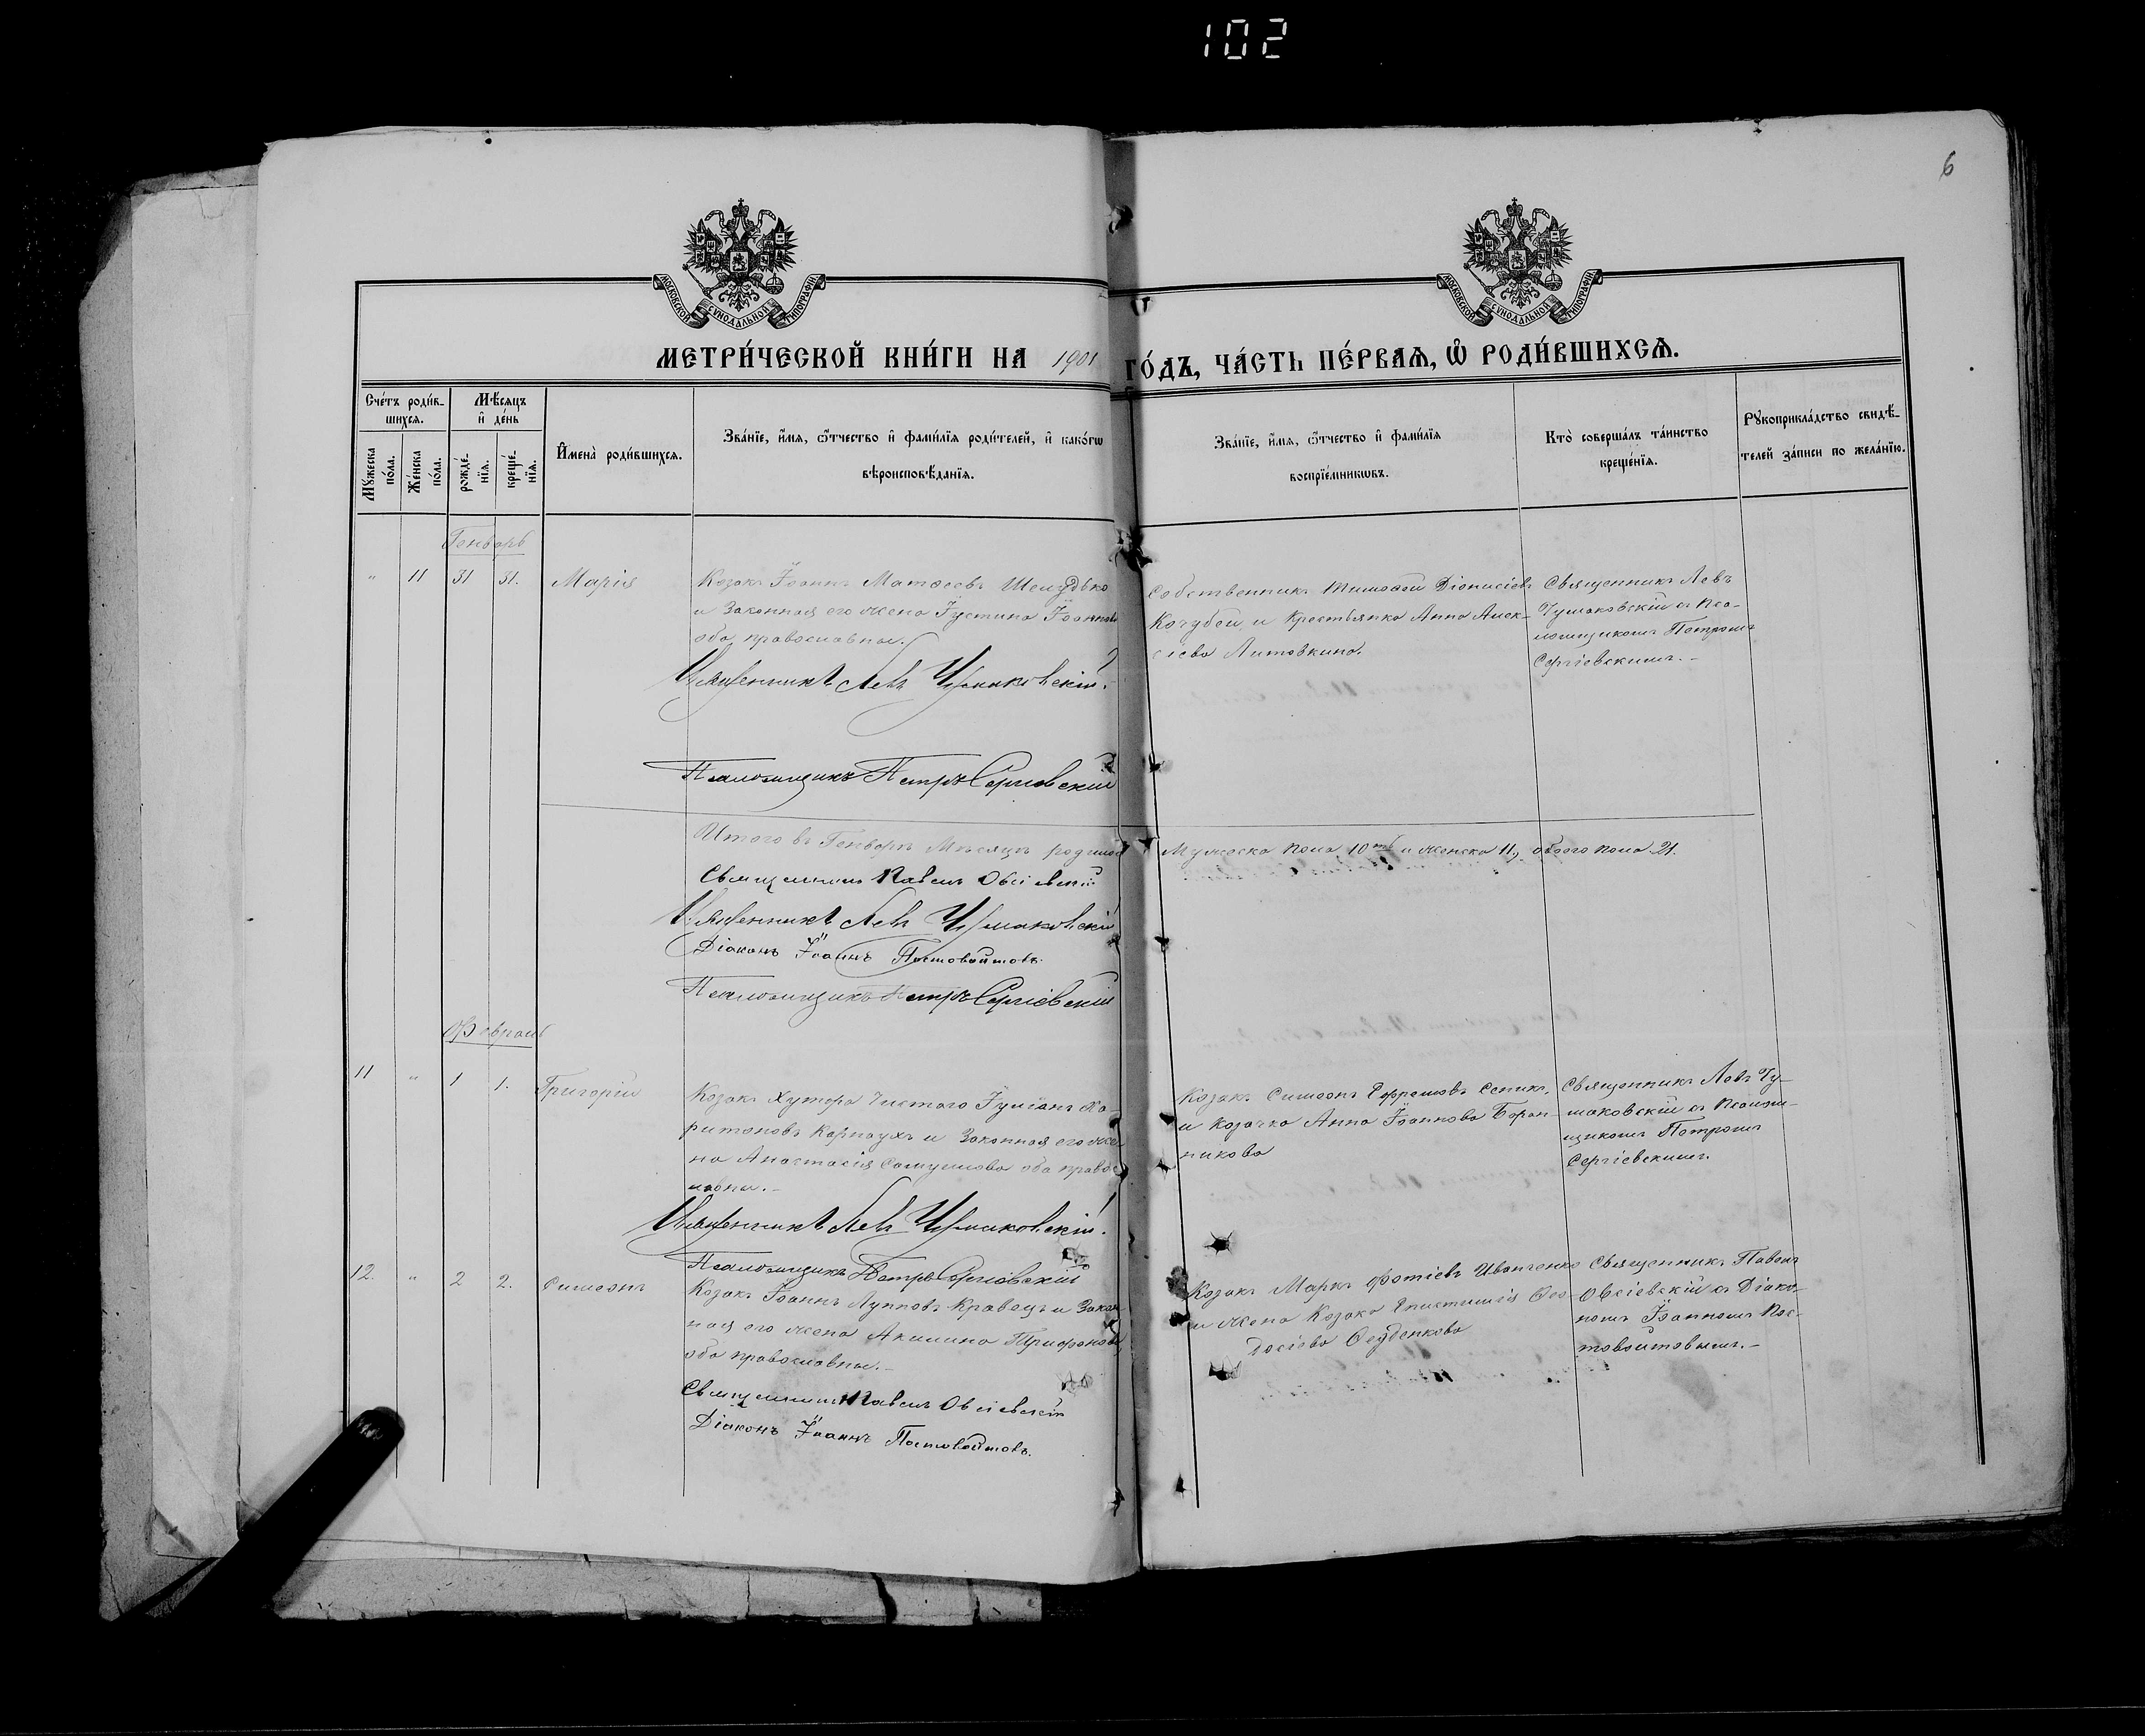 102
6
МОСКОВСКОЙ СѴНОДАЛЬНОЙ ТИПОГРАФІИ
МОСКОВСКОЙ СѴНОДАЛЬНОЙ ТИПОГРАФІИ
МЕТРИ́ЧЕСКОЙ КНИ́ГИ НА 1901 ГО́ДЪ, ЧА́СТЬ ПЕ́РВАѦ, Ѿ РОДИ́ВШИХСѦ.
Сче́тъ роди́в-
шихсѧ.
Мꙋ́жеска по́ла.
Же́нска по́ла.
Мѣ́сѧцъ
и҆ де́нь
рожде́-
нїѧ.
креще́-
нїѧ.
И҆мена̀ роди́вшихсѧ.
Зва́нїе, и҆́мѧ, ѻ҆́тчество и҆ фами́лїѧ роди́телей, и҆ како́гѡ
вѣроисповѣ́данїѧ.
Зва́нїе, и҆́мѧ, ѻ҆́тчество и҆ фами́лїѧ
воспрїе́мникѡвъ.
Кто̀ соверша́лъ та́инство
креще́нїѧ.
Рꙋкоприкла́дство свидѣ́-
телей за́писи по жела́нїю.
Генварь
" 11 31 31. Марія
Козакъ Іоаннъ Матѳеевъ Шелудько
и законная его жена Іустина Іоаннова
оба православны.
Священникъ Левъ Чумаковскій.
Псаломщикъ Петръ Сергіевскій
Собственникъ Тимоѳей Діонисіевъ
Кочубей и крестьянка Анна Алек-
сіева Литовкина.
Священникъ Левъ
Чумаковскій съ Пса-
ломщикомъ Петромъ
Сергіевскимъ.-
Итого въ Генварѣ Мѣсяцѣ родилось Мужеска пола 10ть и женска 11, обоего пола 21.
Священникъ Павелъ Овсіевскій
Священникъ Левъ Чумаковскій
Діаконъ Іоаннъ Постовойтовъ.
Псаломщикъ Петръ Сергіевскій
Февраль
11 " 1 1. Григорій
Козакъ Хутора Чистаго Іуліанъ Ха-
ритоновъ Карнаухъ и законная его же-
на Анастасія Самуилова оба правос-
лавны.-
Священникъ Левъ Чумаковскій.
Псаломщикъ Петръ Сергіевскій
Козакъ Симеонъ Ефремовъ
и козачка Анна Іоаннова Баран-
никова
Священникъ Левъ Чу-
маковскій съ Псалом-
щикомъ Петромъ
Сергіевскимъ.
12. " 2 2. Симеонъ
Козакъ Іоаннъ Лупповъ Кравецъ и закон-
ная его жена Акилина Трифонова
оба православны.-
Священникъ Павелъ Овсіевскій
Діаконъ Іоаннъ Постовойтовъ.
Козакъ Маркъ Фотіевъ Иванченко
и жена козака Епистимія Ѳео-
досіева
Священникъ Павелъ
Овсіевскій съ Діако-
номъ Іоанномъ Пос-
товойтовымъ.-